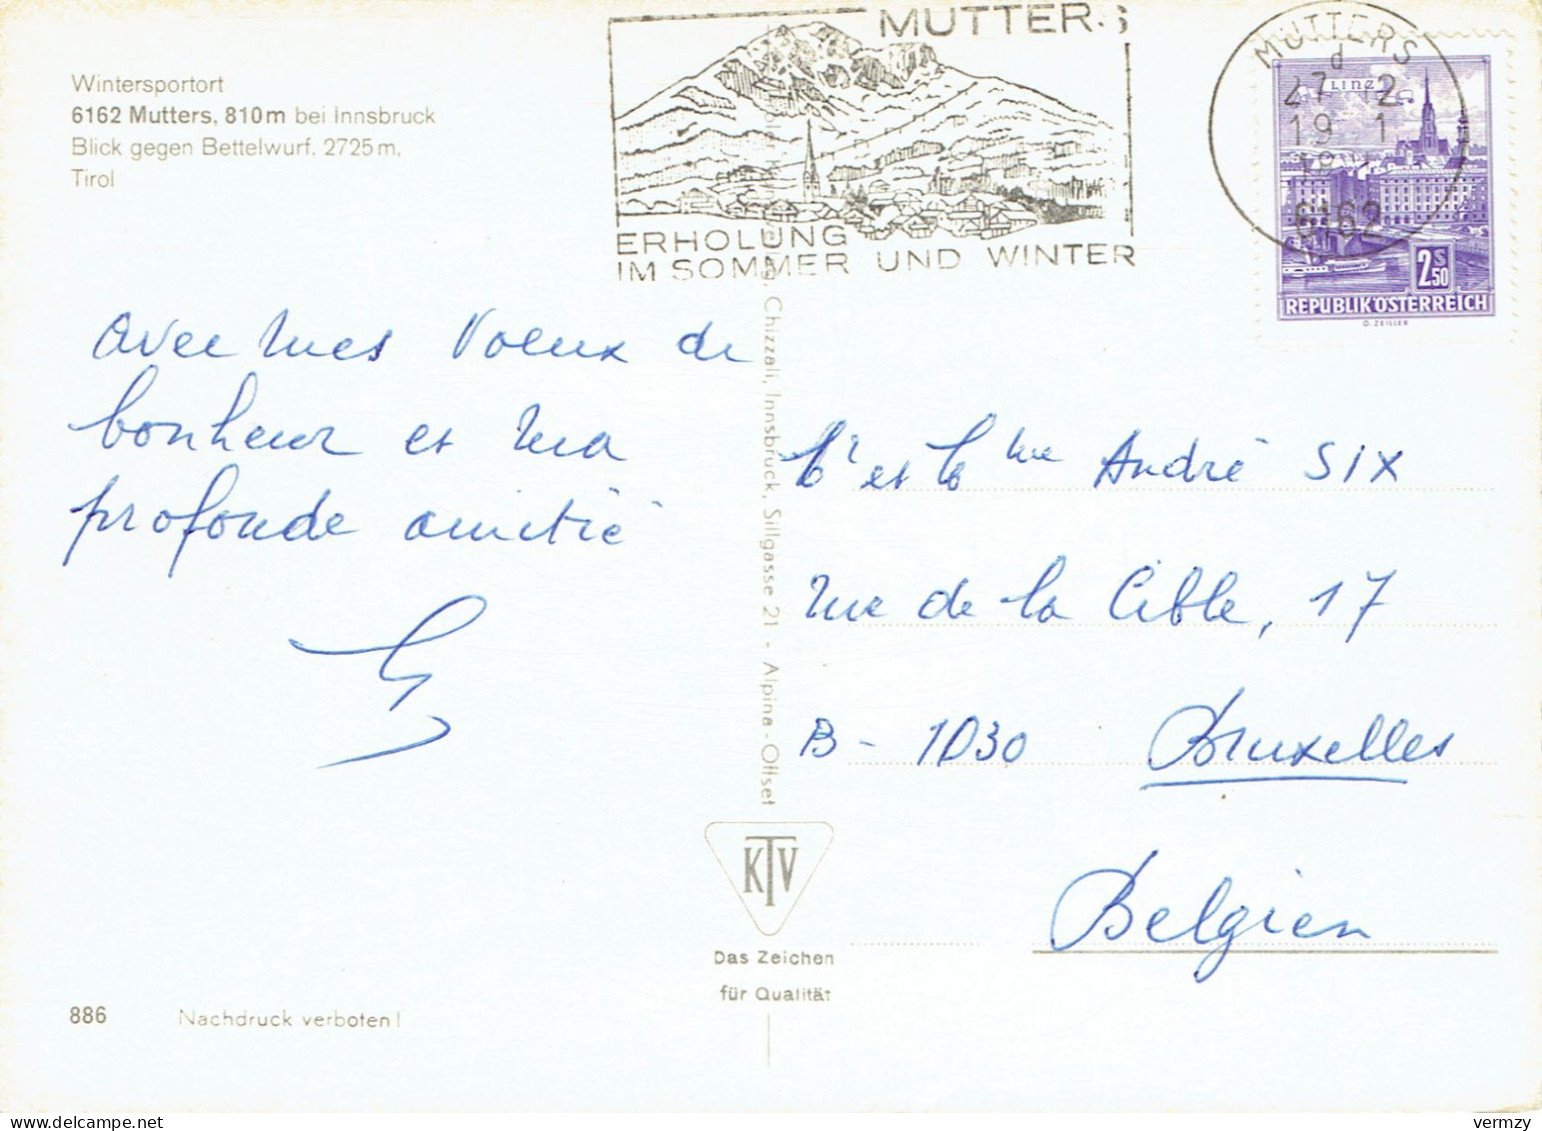 Wintersportort
6162 Mutters, 810m bei Innsbruck
Blick gegen Bettelwurf. 2725m.
Tirol
MUTTERS
ERHOLUNG
IM SOMMER UND WINTER
MUTTERS
d
27 12
19 1
6162
LINZ
2 S 50
REPUBLIK ÖSTERREICH
O. ZEILLER
avec mes voeux de
bonheur et ma
profonde amitié
Chizzali, Innsbruck, Sillgasse 21 - Alpina-Offset
Mr et Mme André SIX
rue de la Cible, 17
B - 1030 Bruxelles
Belgien
KTV
Das Zeichen
für Qualität
886 Nachdruck verboten!
vermzy